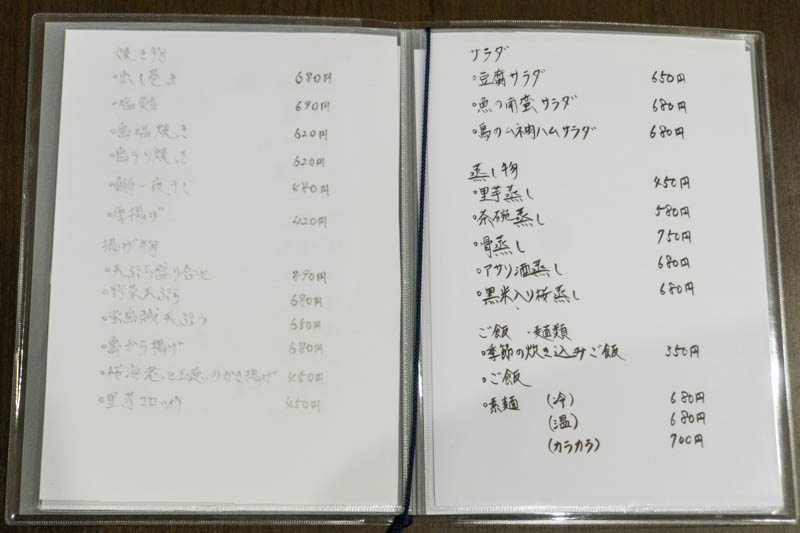 焼き物
・出し巻き 680円
・塩鯖 690円
・鳥塩焼き 620円
・鳥テリ焼き 620円
一夜干し 480円
・厚揚げ 420円
揚げ物
・天ぷら盛り合せ 890円
・野菜天ぷら 680円
天ぷら 650円
・鳥から揚げ 680円
・桜海老と のかき揚げ 450円
・里芋コロッケ 450円
サラダ
・豆腐サラダ 650円
・魚の南蛮サラダ 680円
・鳥のムネ肉ハムサラダ 680円
蒸し物
・里芋蒸し 450円
・茶碗蒸し 580円
・骨蒸し 750円
・アサリ酒蒸し 680円
・黒米入り桜蒸し 680円
ご飯・麺類
・季節の炊き込みご飯 350円
・ご飯
・素麺 (冷) 680円
(温) 680円
(カラカラ) 700円